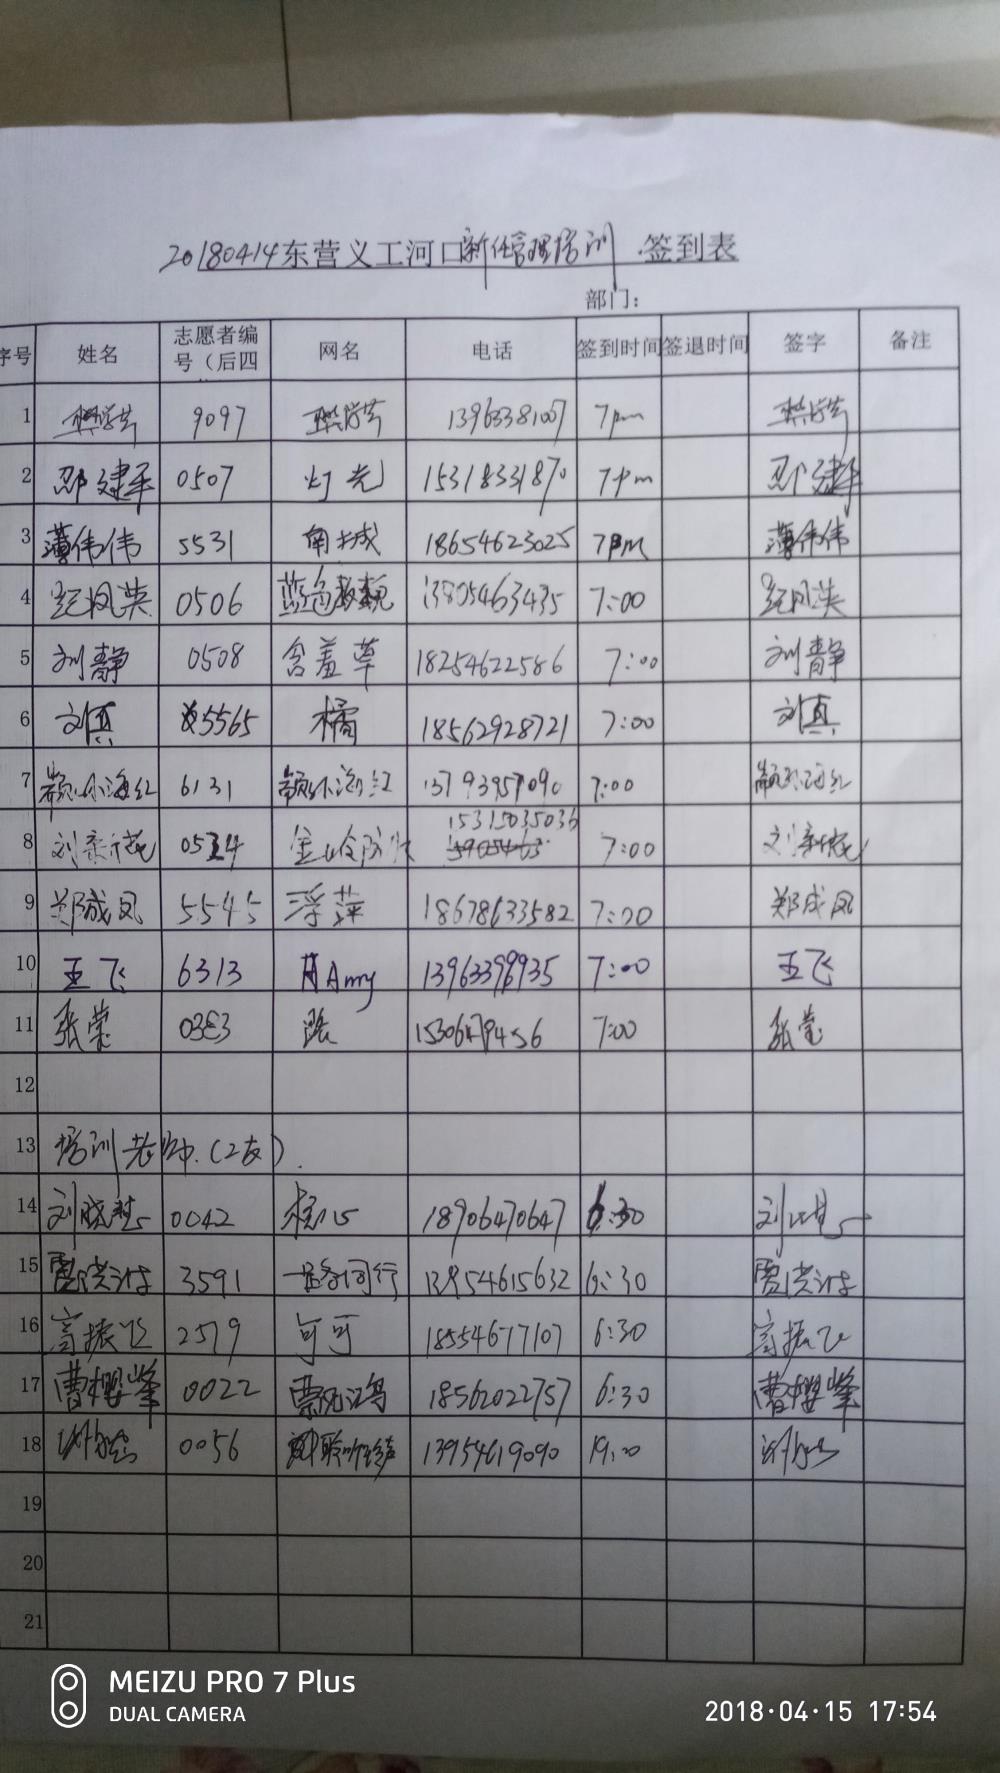 20180414东营义工河口新任管理培训 签到表
部门：
序号 姓名 志愿者编号（后四 网名 电话 签到时间 签退时间 签字 备注
1 9097 13963381007 7pm
2 邵建平 0507 灯光 15318331870 7pm 邵建平
3 薄伟伟 5531 南城 18654623025 7pm 薄伟伟
4 纪凤英 0506 蓝色 13805463435 7:00 纪凤英
5 刘静 0508 含羞草 18254622586 7:00 刘静
6 刘真 5565 橘 18562928721 7:00 刘真
7 颜小海红 6131 颜小海红 13793957090 7:00 颜小海红
8 0534 15315035036 7:00
9 郑成凤 5545 浮萍 18678633582 7:00 郑成凤
10 王飞 6313 Amy 7:00 王飞
11 张莹 0383 路 15306479456 7:00 张莹
12
13 培训老师.(2友).
14 刘晓慧 0042 核心 18906470647 6:30
15 贾洪 3591 一路同行 13954615632 6:30 贾洪
16 高振飞 2579 可可 18554677107 6:30 高振飞
17 曹樱峰 0022 18562022757 6:30 曹樱峰
18 0056 聆听铃声 13954619090 19:00
19
20
21
MEIZU PRO 7 Plus
DUAL CAMERA
2018·04·15 17:54